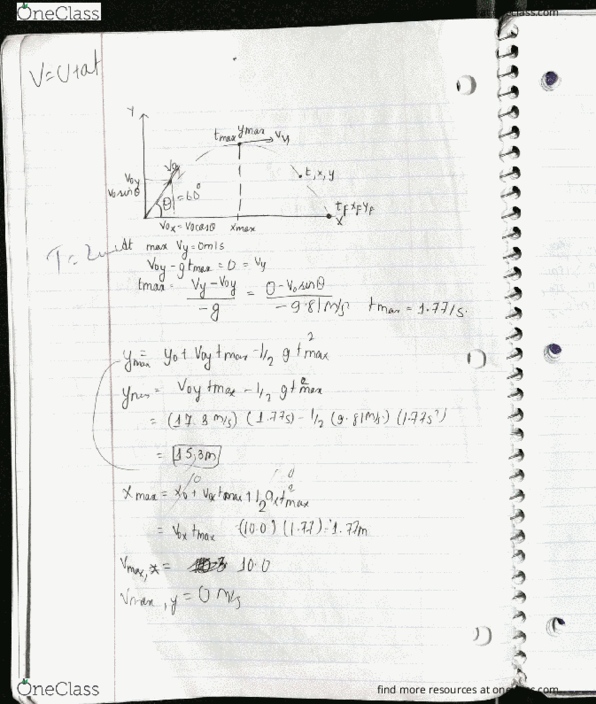 OneClass
oneclass.com
V=U+at
Y
tmax ymax
Vy
Vo
t, x, y
Voy
Vosinθ
θ =60°
tF xF yF
X
Vox=Vocosθ
xmax
At max Vy=0m/s
Voy-gtmax=0=Vy
tmax= Vy-Voy / -g = 0-Vosinθ / -9.81m/s² tmax=1.77/s.
ymax= yo+Voytmax-1/2 gt²max
Voytmax-1/2 gt²max
= (17.3m/s)(1.77s)-1/2(9.81m/s²)(1.77s²)
= 15.3m
0
0
Xmax= xo+Voxtmax+1/2axt²max
= Voxtmax (10.0)(1.77)=1.77m
Vmax,x= 10.0
Vmax,y=0m/s
OneClass
find more resources at oneclass.com